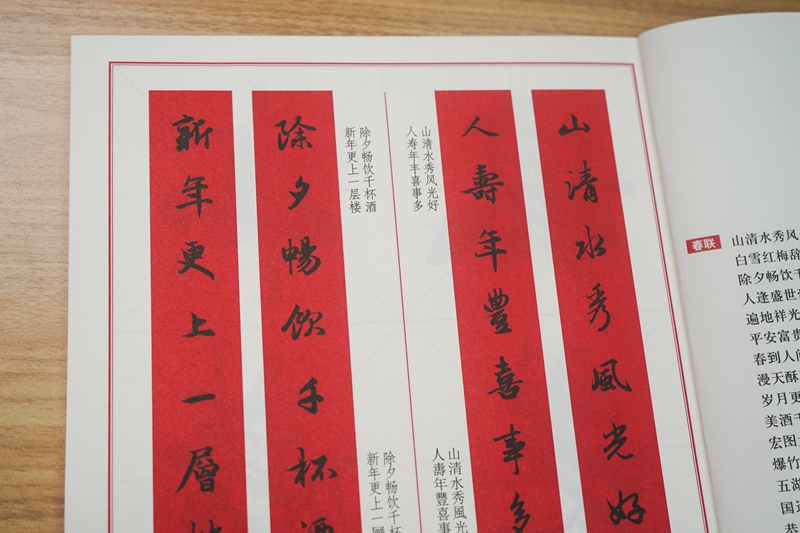 山清水秀風光好
人壽年豐喜事多
山清水秀风光好
人寿年丰喜事多
山清水秀風光
人壽年豐喜事
除夕畅饮千杯酒
新年更上一层楼
除夕暢飲千杯
新年更上一層
除夕暢飲千杯酒
新年更上一層
春联
山清水秀风
白雪红梅辞
除夕畅饮千
人逢盛世
遍地祥光
平安富贵
春到人
漫天酥
岁月更
美酒
宏图
爆竹
五湖
国
恭